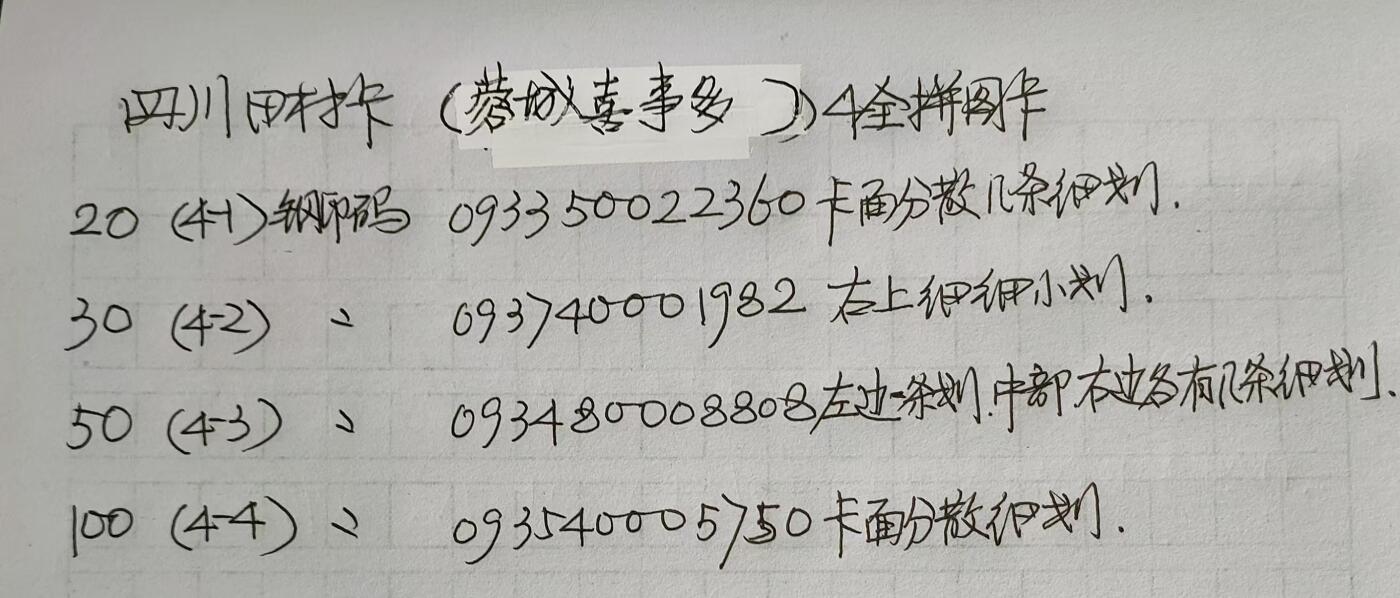 四川田村卡（蓉城喜事多）4全拼图卡
20（4-1）钢印码 093350022360 卡面分散几条细划．
30（4-2）〃 093740001982 右上细细小划．
50（4-3）〃 093480008808 左边一条划．中部 右边各有几条细划．
100（4-4）〃 093540005750 卡面分散细划．